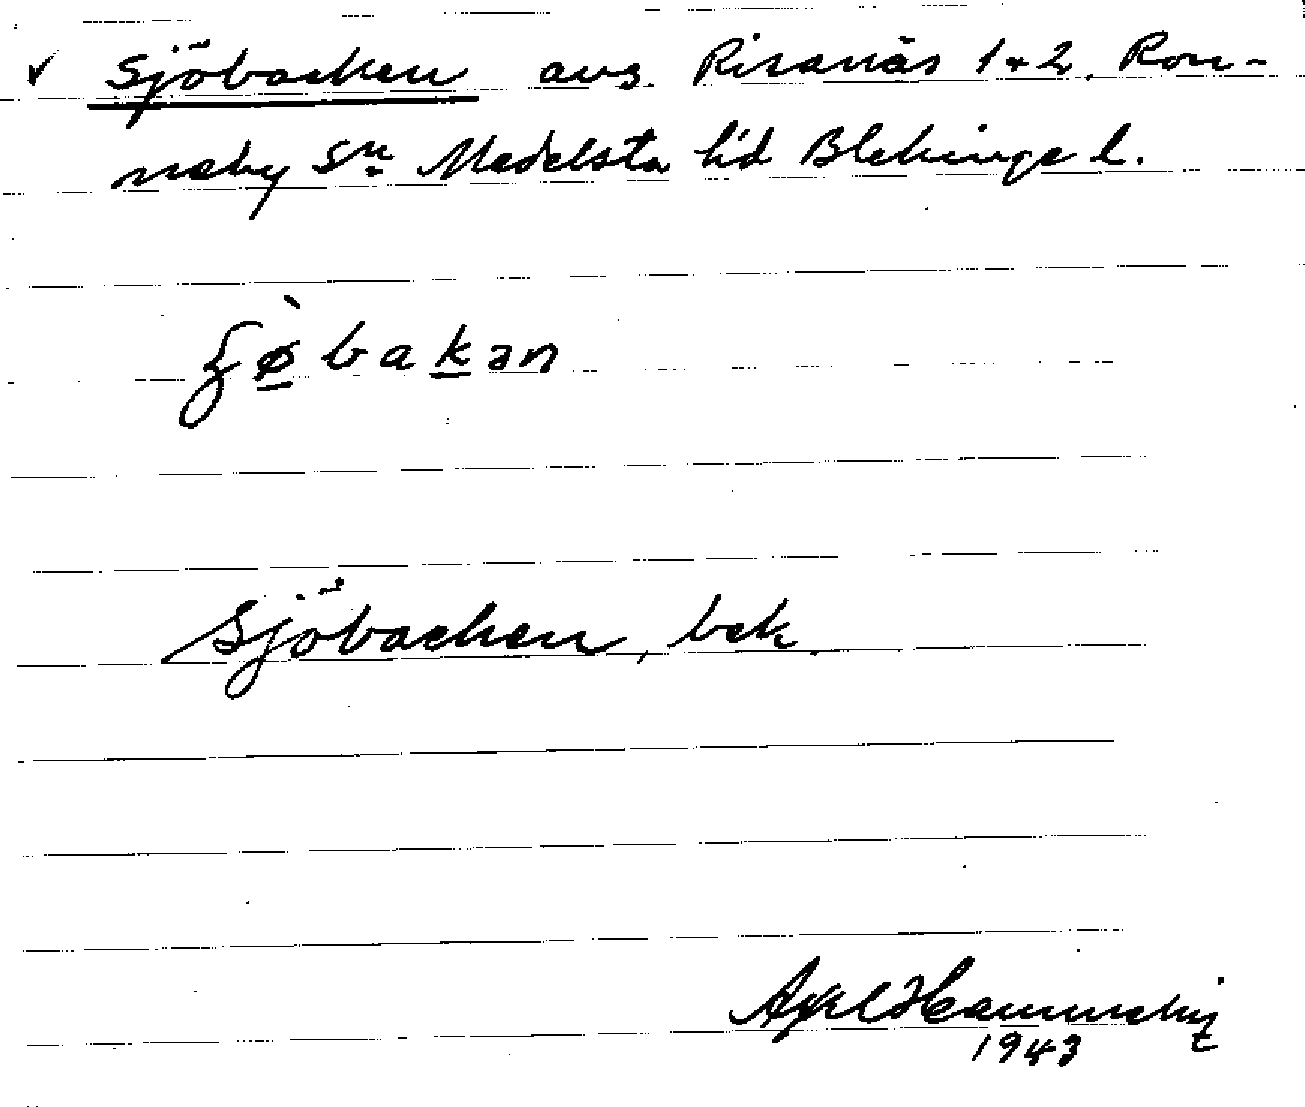 ✓ Sjöbacken avs. Risanäs 1+2. Ron-
neby Sn Medelsta hd Blekinge l.
ʃø̀bakən
Sjöbacken, bek.
Axel
1943